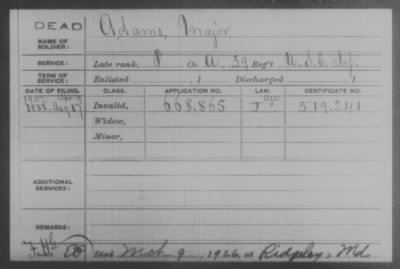 DEAD
NAME OF SOLDIER: Adams, Major
SERVICE: Late rank, P Co. A, 39 Reg't U.S.C. Inf.
TERM OF SERVICE: Enlisted , 1 Discharged , 1
DATE OF FILING. CLASS. APPLICATION NO. LAW. CERTIFICATE NO.
1888. Aug 17 Invalid, 668.865 J 519.241
Widow,
Minor,
ADDITIONAL SERVICES:
REMARKS:
Died Mch 9, 1926, at Ridgley, Md